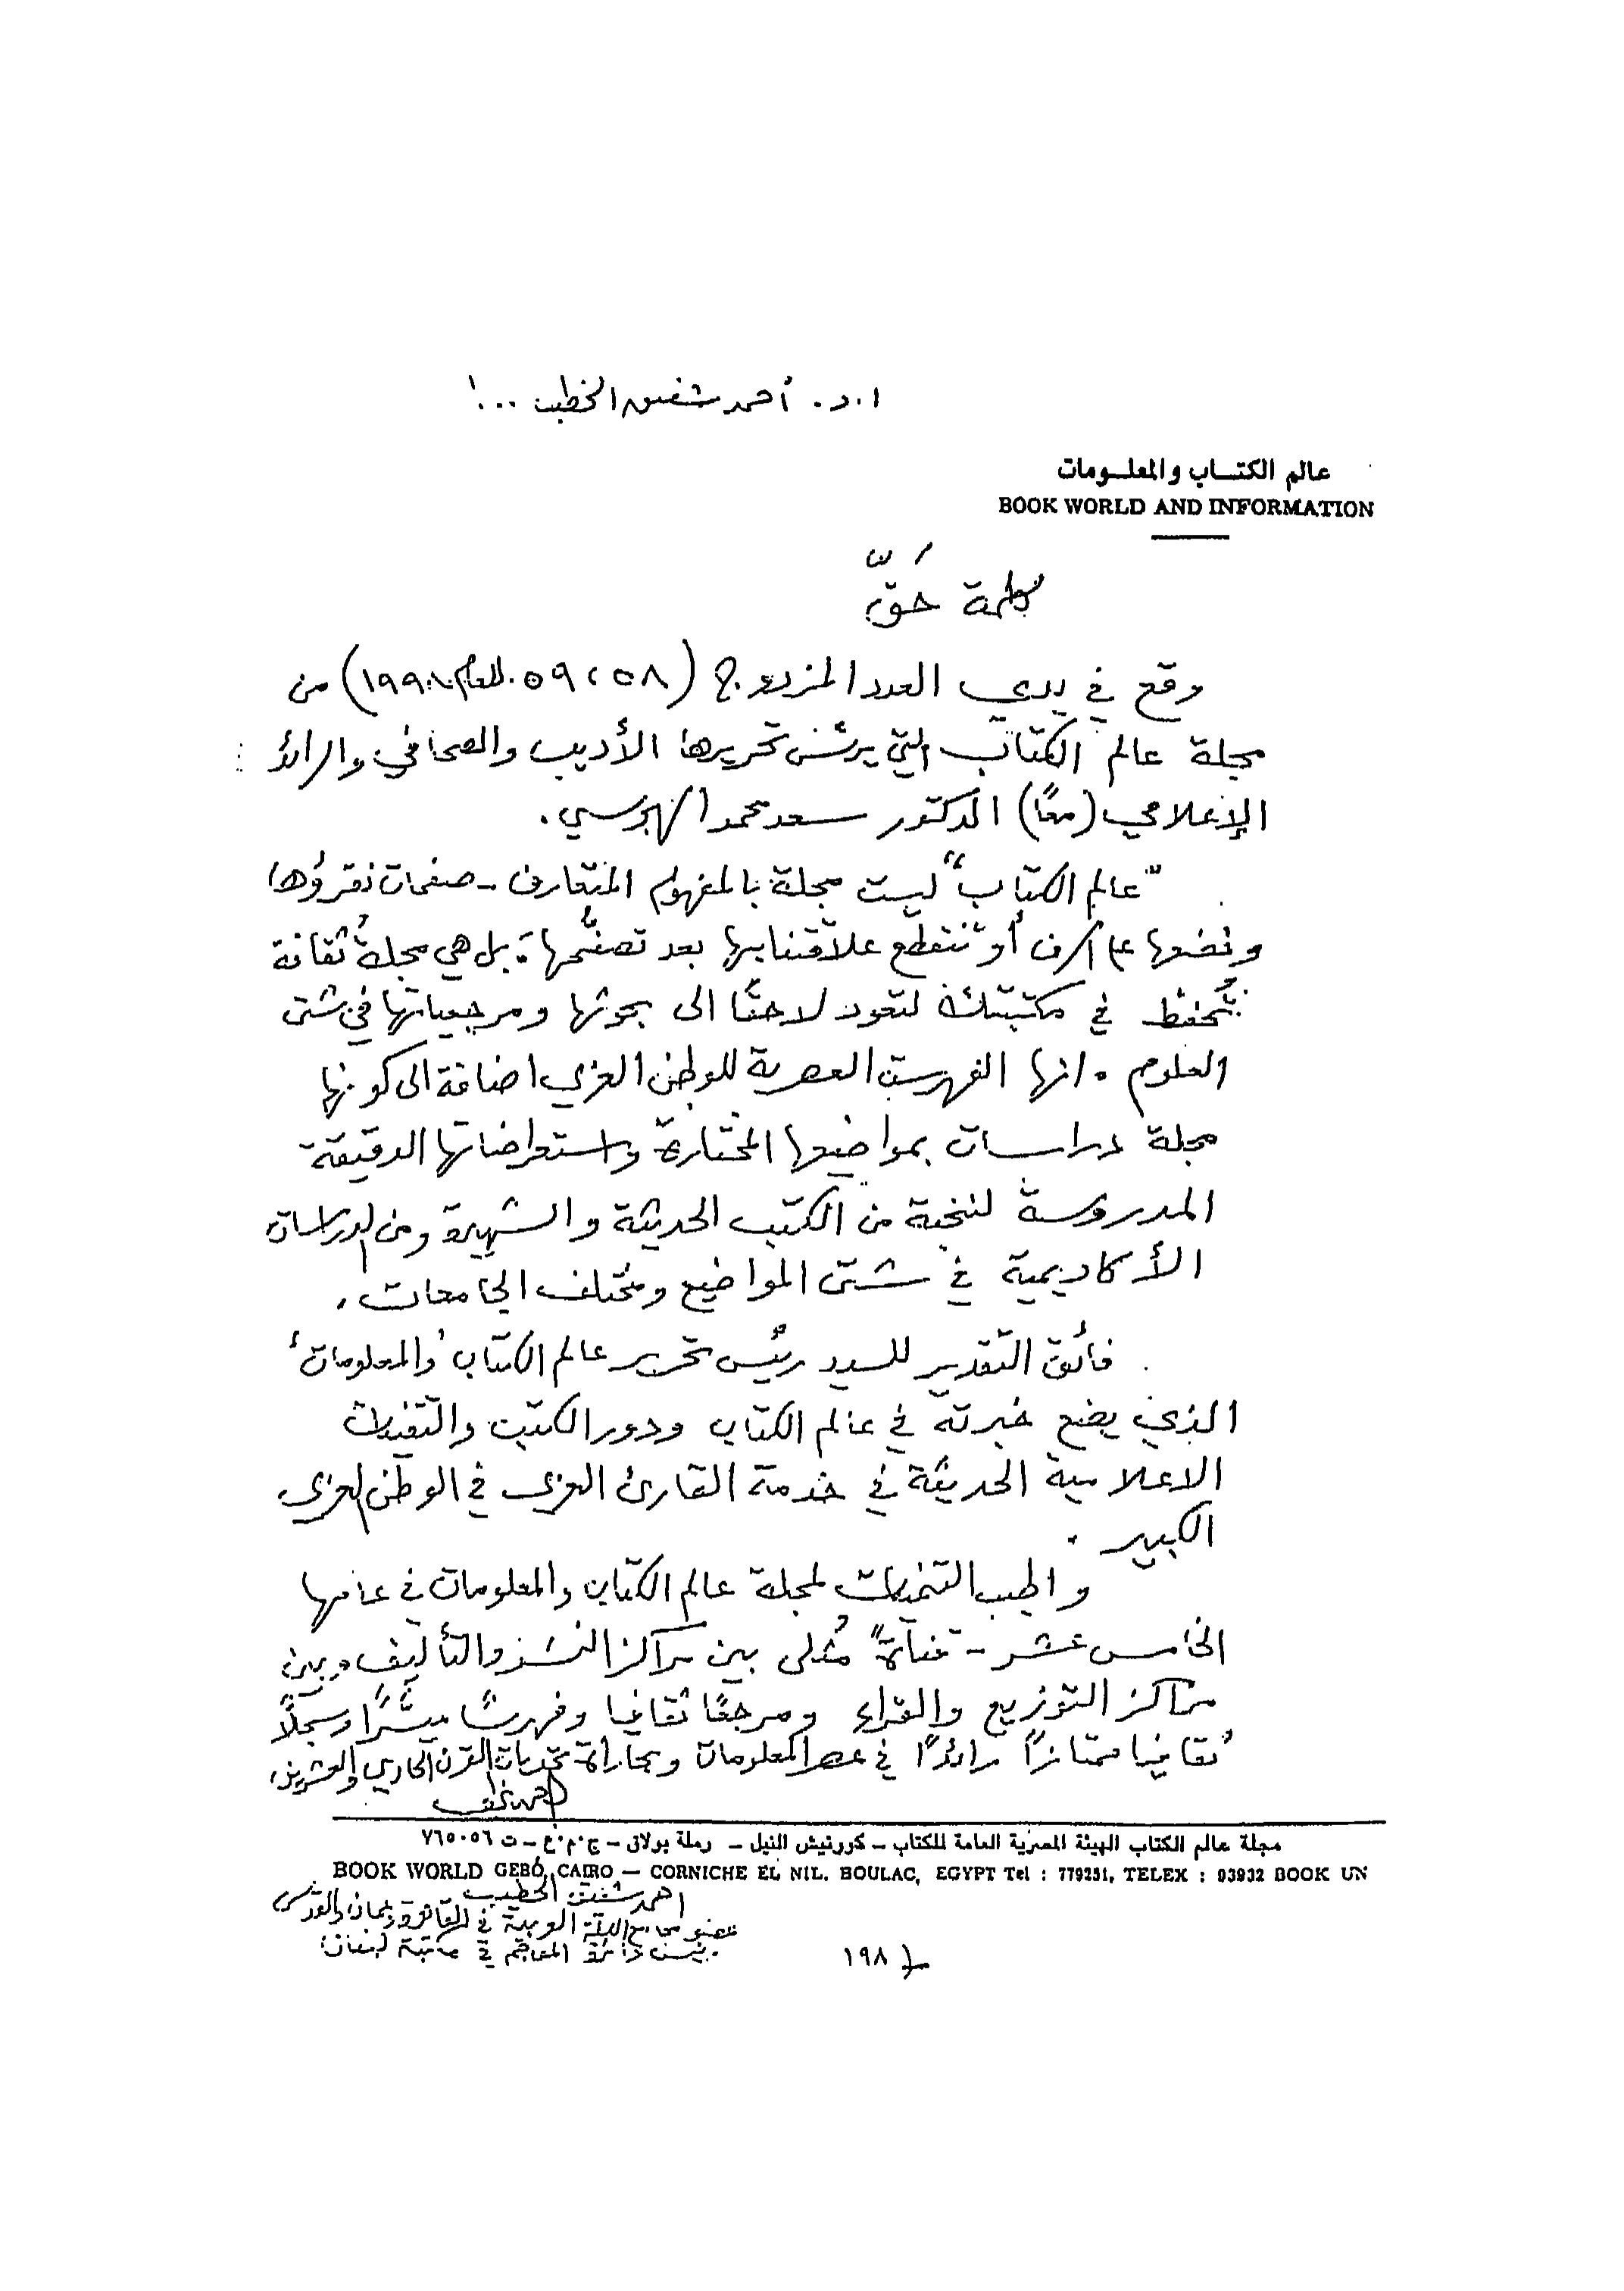 ا.د. أحمد شفيق الخطيب ...!
عالم الكتاب والمعلومات
BOOK WORLD AND INFORMATION
كلمة حَقّ
وقع في يدي العدد المزدوج (٥٨، ٥٩ للعام ١٩٩٨) من
مجلة عالم الكتاب التي يرئس تحريرها الأديب والصحافي والرائد
الإعلامي (معًا) الدكتور سعد محمد الهجرسي.
"عالم الكتاب" ليست مجلة بالمفهوم المتعارف - صفحات نقرؤها
ونضعها على الرف أو تنقطع علاقتنا بها بعد تصفّحها، بل هي مجلةُ ثقافة
تُحفظ في مكتبتك لتعود لاحقًا الى بحوثها ومرجعياتها في شتى
العلوم. انها الفهرست العصرية للوطن العربي اضافة الى كونها
مجلة دراسات بمواضيعها المختارة واستعراضاتها الدقيقة
المدروسة لنخبة من الكتب الحديثة والشهيرة ومن الدراسات
الأكاديمية في شتى المواضيع ومختلف الجامعات.
فائق التقدير للسيد رئيس تحرير عالم الكتاب 'والمعلومات'
الذي يضع خبرته في عالم الكتاب ودور الكتب والتقنيات
الاعلامية الحديثة في خدمة القارئ العربي في الوطن العربي
الكبير.
واطيب التمنيات لمجلة عالم الكتاب والمعلومات في عامها
الخامس عشر - "قناة" مُثلى بين مراكز النشر والتأليف وبين
مراكز التوزيع والقراء ومرجعًا ثقافيا وفهرستًا ميسَّرًا وسجلًّا
ثقافيا ممتازًا رائدًا في عصر المعلومات ومجاراة تحديات القرن الحادي والعشرين.
مجلة عالم الكتاب الهيئة المصرية العامة للكتاب - كورنيش النيل - رملة بولاق - ج.م.ع - ت ٧٦٥٠٥٦
BOOK WORLD GEBO, CAIRO — CORNICHE EL NIL. BOULAC, EGYPT Tel : 779231, TELEX : 93932 BOOK UN
احمد شفيق الخطيب
عضو مجامع اللغة العربية في القاهرة وعمان والقدس
رئيس دائرة المعاجم في مكتبة لبنان
١٩٨